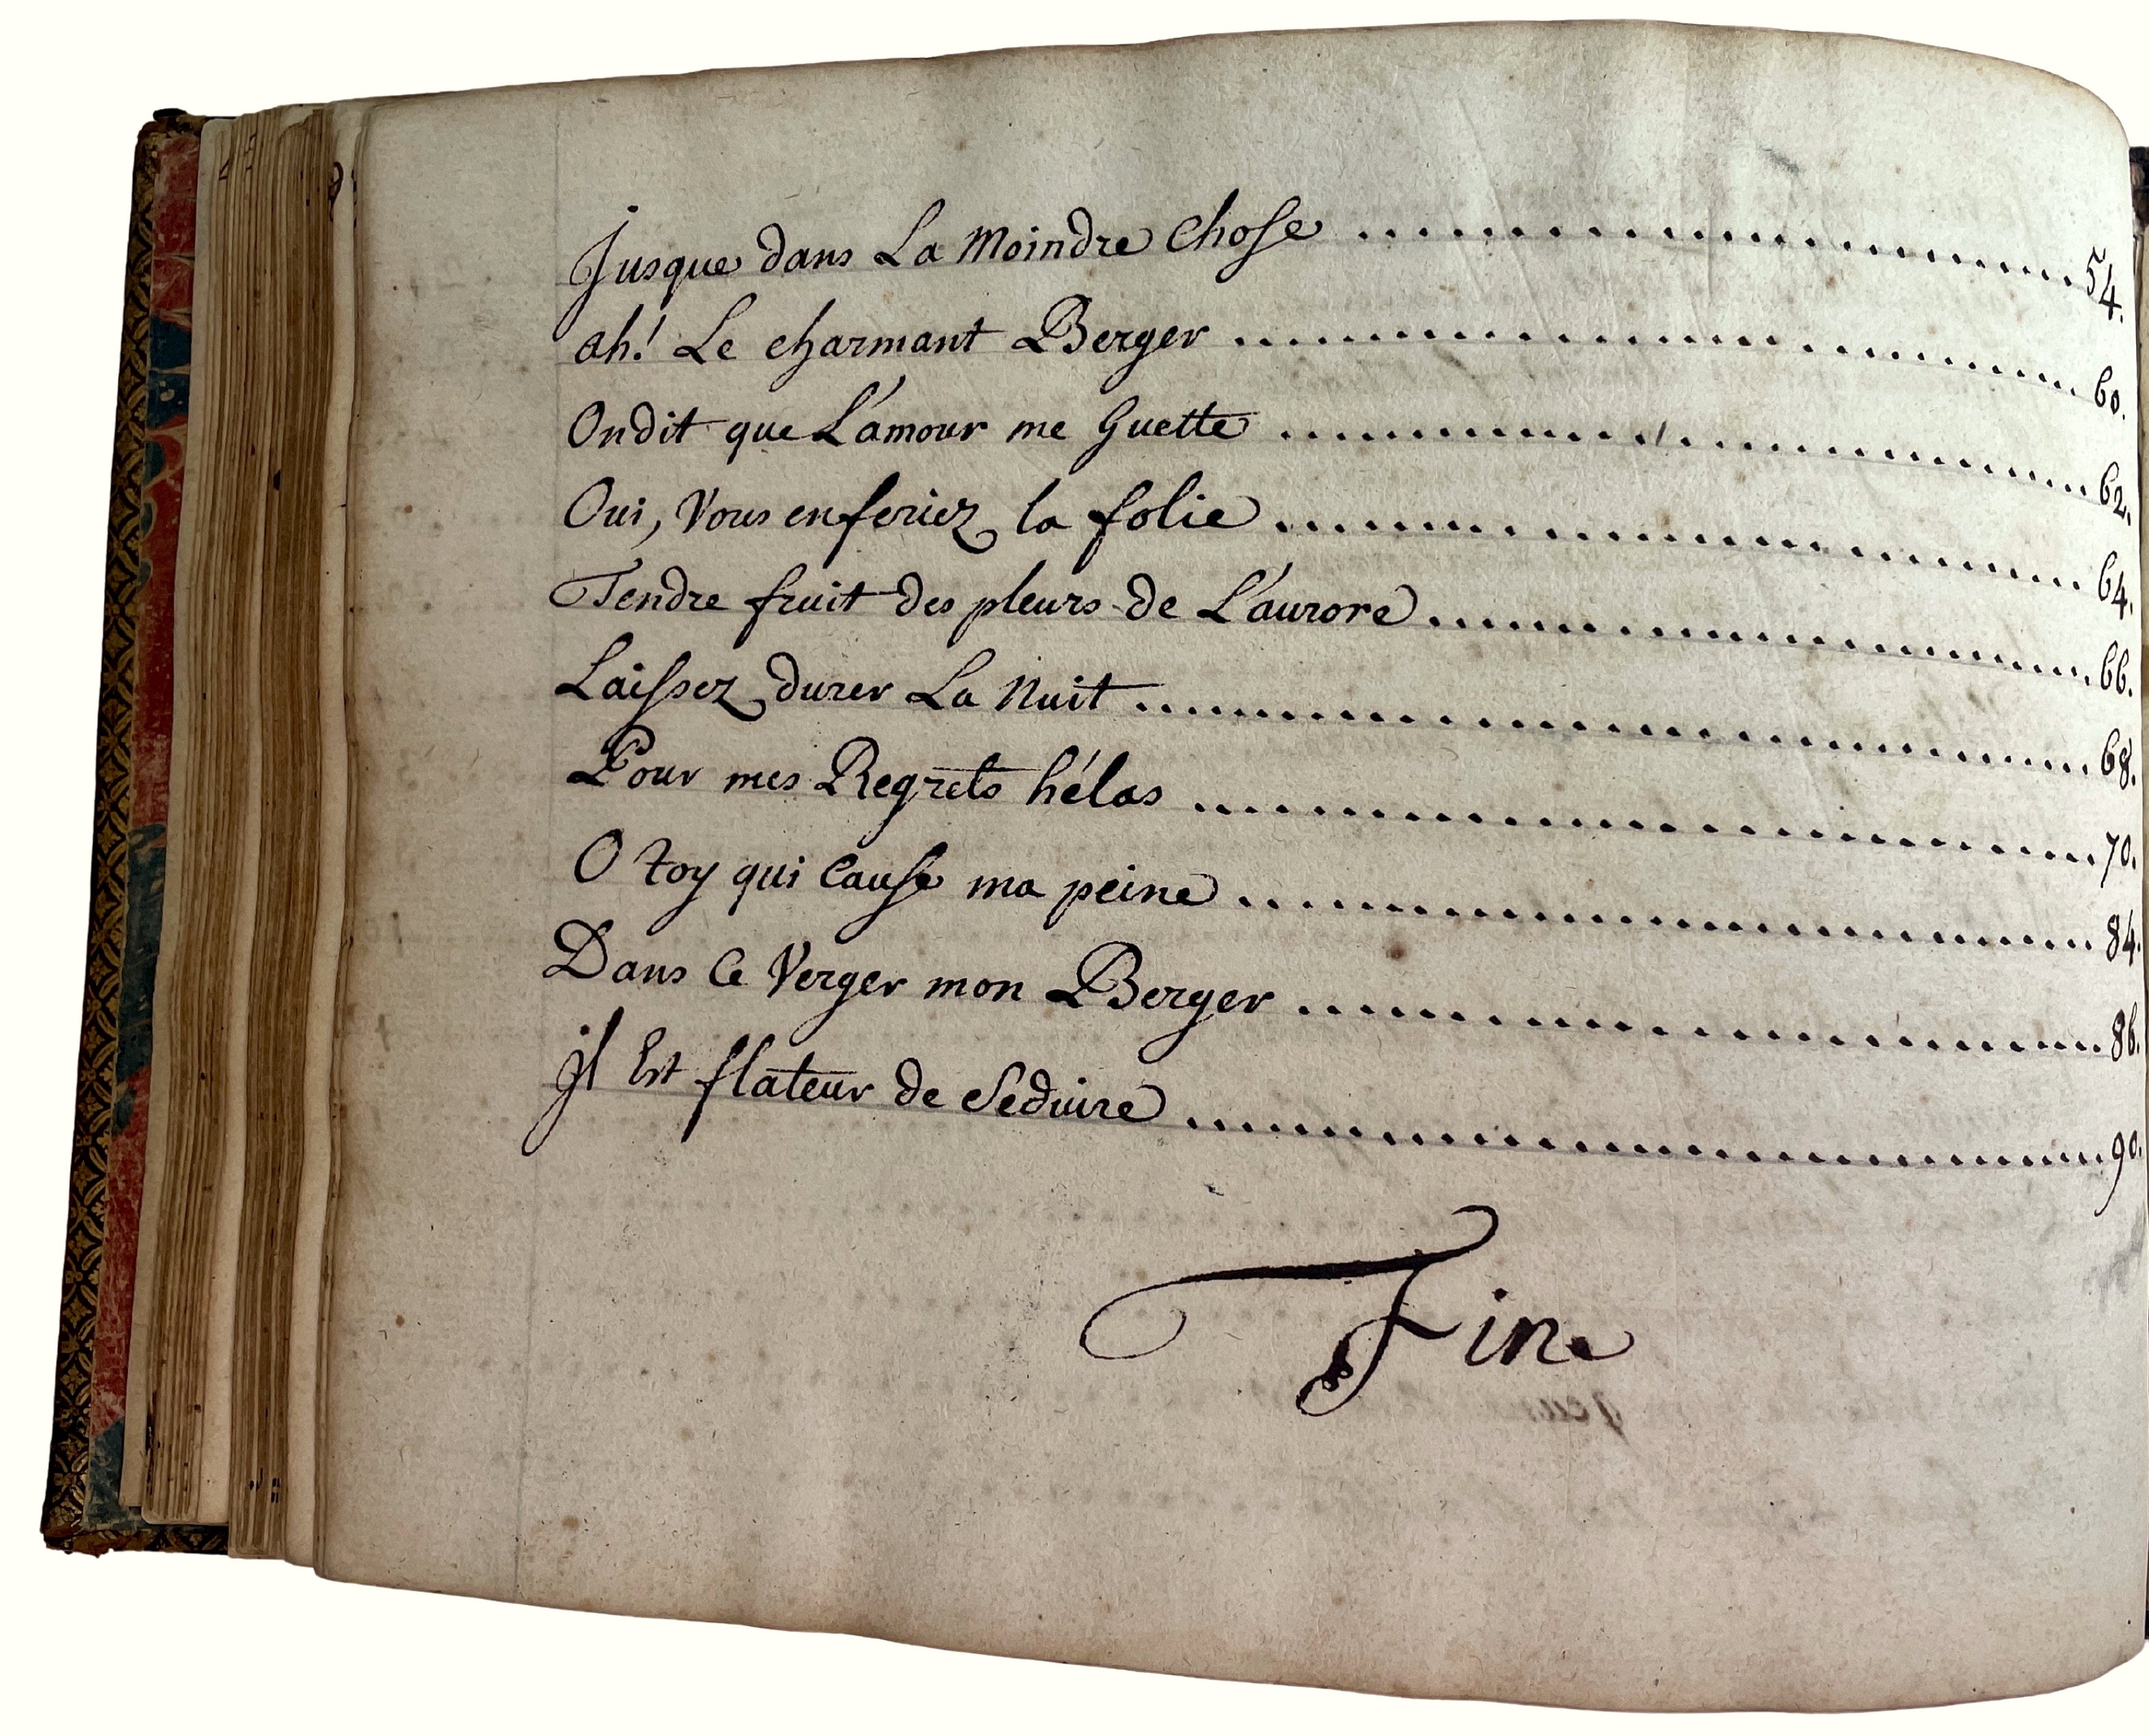 Jusque dans La Moindre Chose .......... 54.
ah! Le charmant Berger .......... 60.
On dit que L'amour me Guette .......... 62.
Oui, Vous en feriez la folie .......... 64.
Tendre fruit des pleurs de L'aurore .......... 66.
Laissez durer La Nuit .......... 68.
Pour mes Regrets hélas .......... 70.
O toy qui Cause ma peine .......... 84.
Dans Ce Verger mon Berger .......... 86.
Jl Est flateur de Seduire .......... 90.
Fin